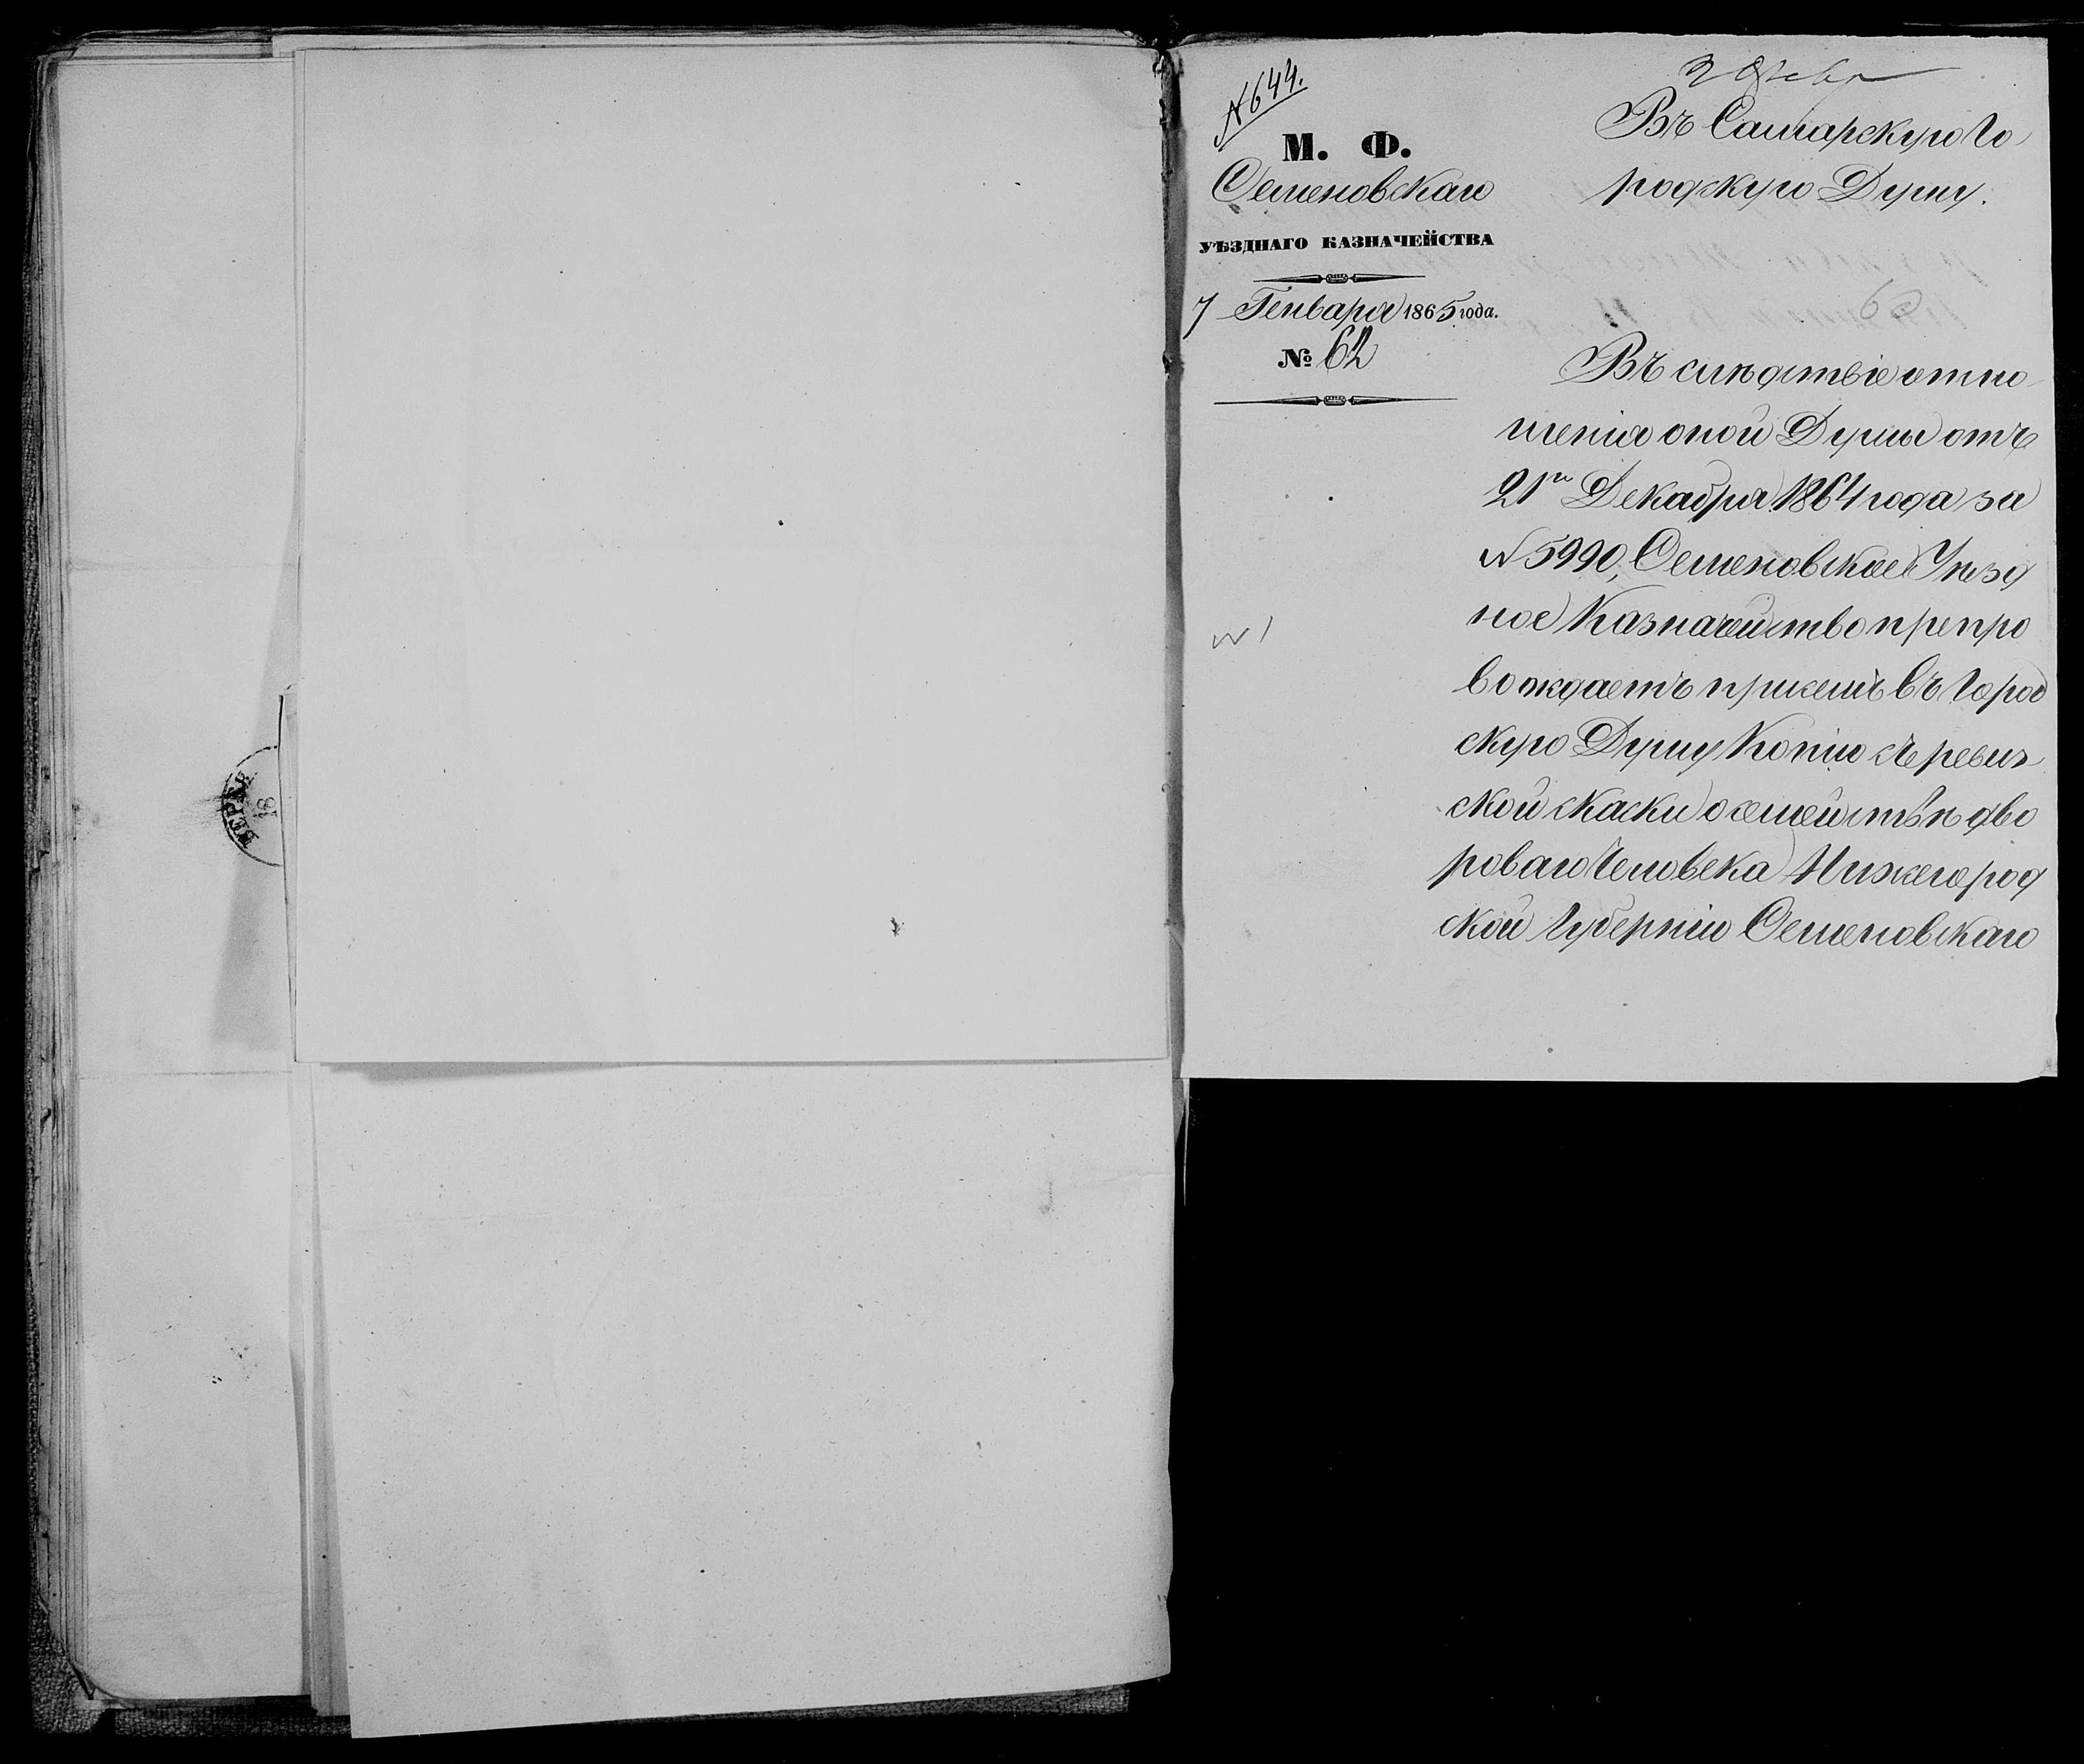 № 644.
М. Ф.
Семеновскаго
УѢЗДНАГО КАЗНАЧЕЙСТВА
7 Генваря 1865 года.
№ 62
Въ Самарскую Го
родскую Думу.
Въ слѣдствіе отно
шенія оной Думы отъ
21го Декабря 1864 года за
№ 5990, Семеновское Уѣзд
ное Казначейство препро
вождаетъ присемъ въ Город
скую Думу Копію съ ревиз
ской скаски о семействѣ дво
роваго человека Нижегород
ской Губерніи Семеновскаго
№ 1